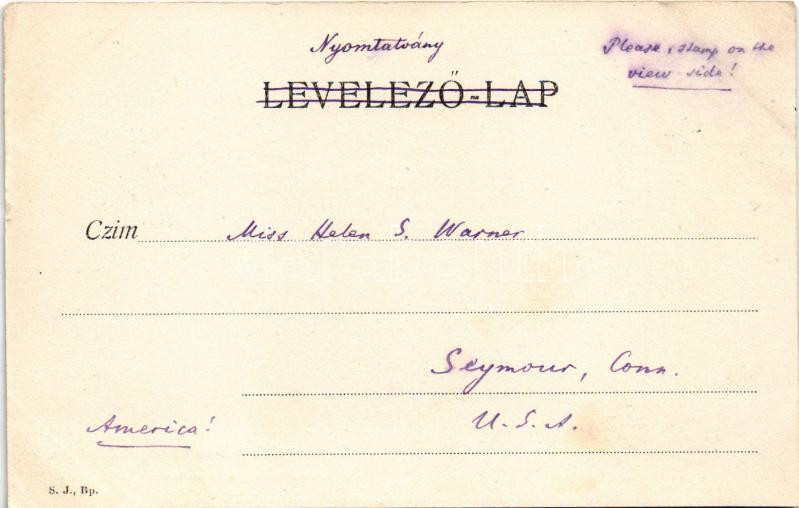 Nyomtatvány
Please, stamp on the
view-side!
LEVELEZŐ-LAP
Czim Miss Helen S. Warner
Seymour, Conn.
America!
U.S.A.
S. J., Bp.